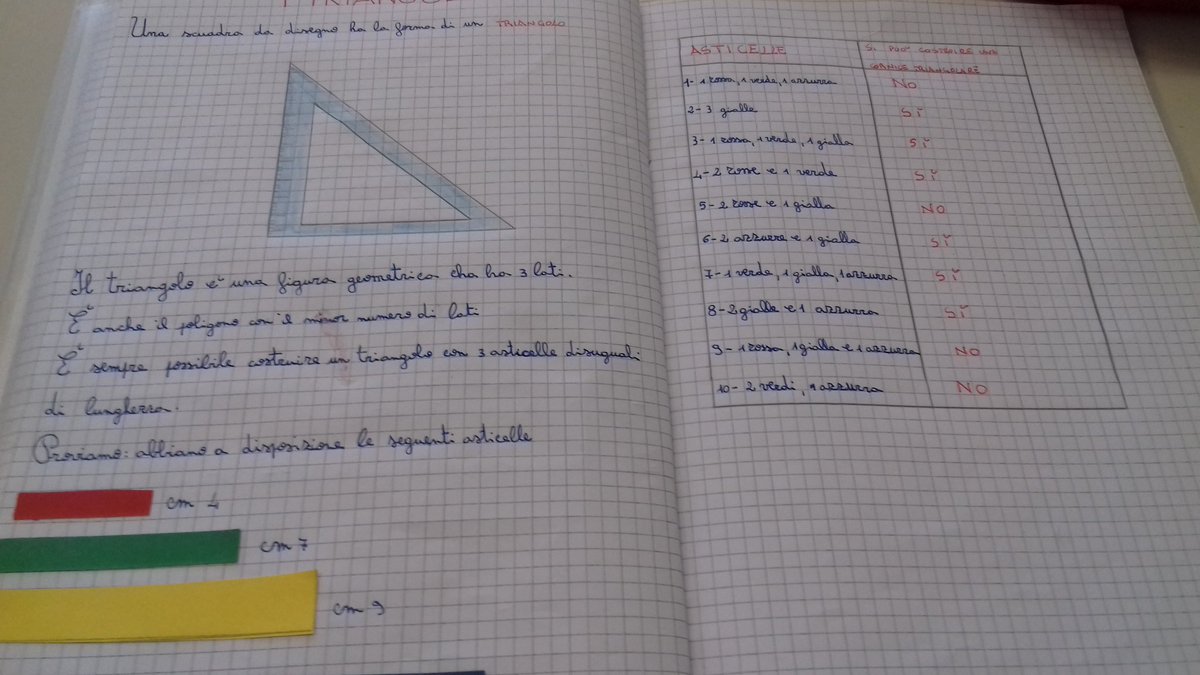 I TRIANGOLI
Una squadra da disegno ha la forma di un TRIANGOLO
Il triangolo è una figura geometrica cha ha 3 lati.
È anche il poligono con il minor numero di lati
È sempre possibile costruire un triangolo con 3 asticelle disuguali
di lunghezza.
Proviamo: abbiano a disposizione le seguenti asticelle
cm 4
cm 7
cm 9
ASTICELLE
SI PUO' COSTRUIRE UNA
CORNICE TRIANGOLARE
1- 1 rossa, 1 verde, 1 azzurra NO
2- 3 gialle SÌ
3- 1 rossa, 1 verde, 1 gialla SÌ
4- 2 rosse e 1 verde SÌ
5- 2 rosse e 1 gialla NO
6- 2 azzurre e 1 gialla SÌ
7- 1 verde, 1 gialla, 1 azzurra SÌ
8- 2 gialle e 1 azzurra SÌ
9- 1 rossa, 1 gialla e 1 azzurra NO
10- 2 verdi, 1 azzurra NO